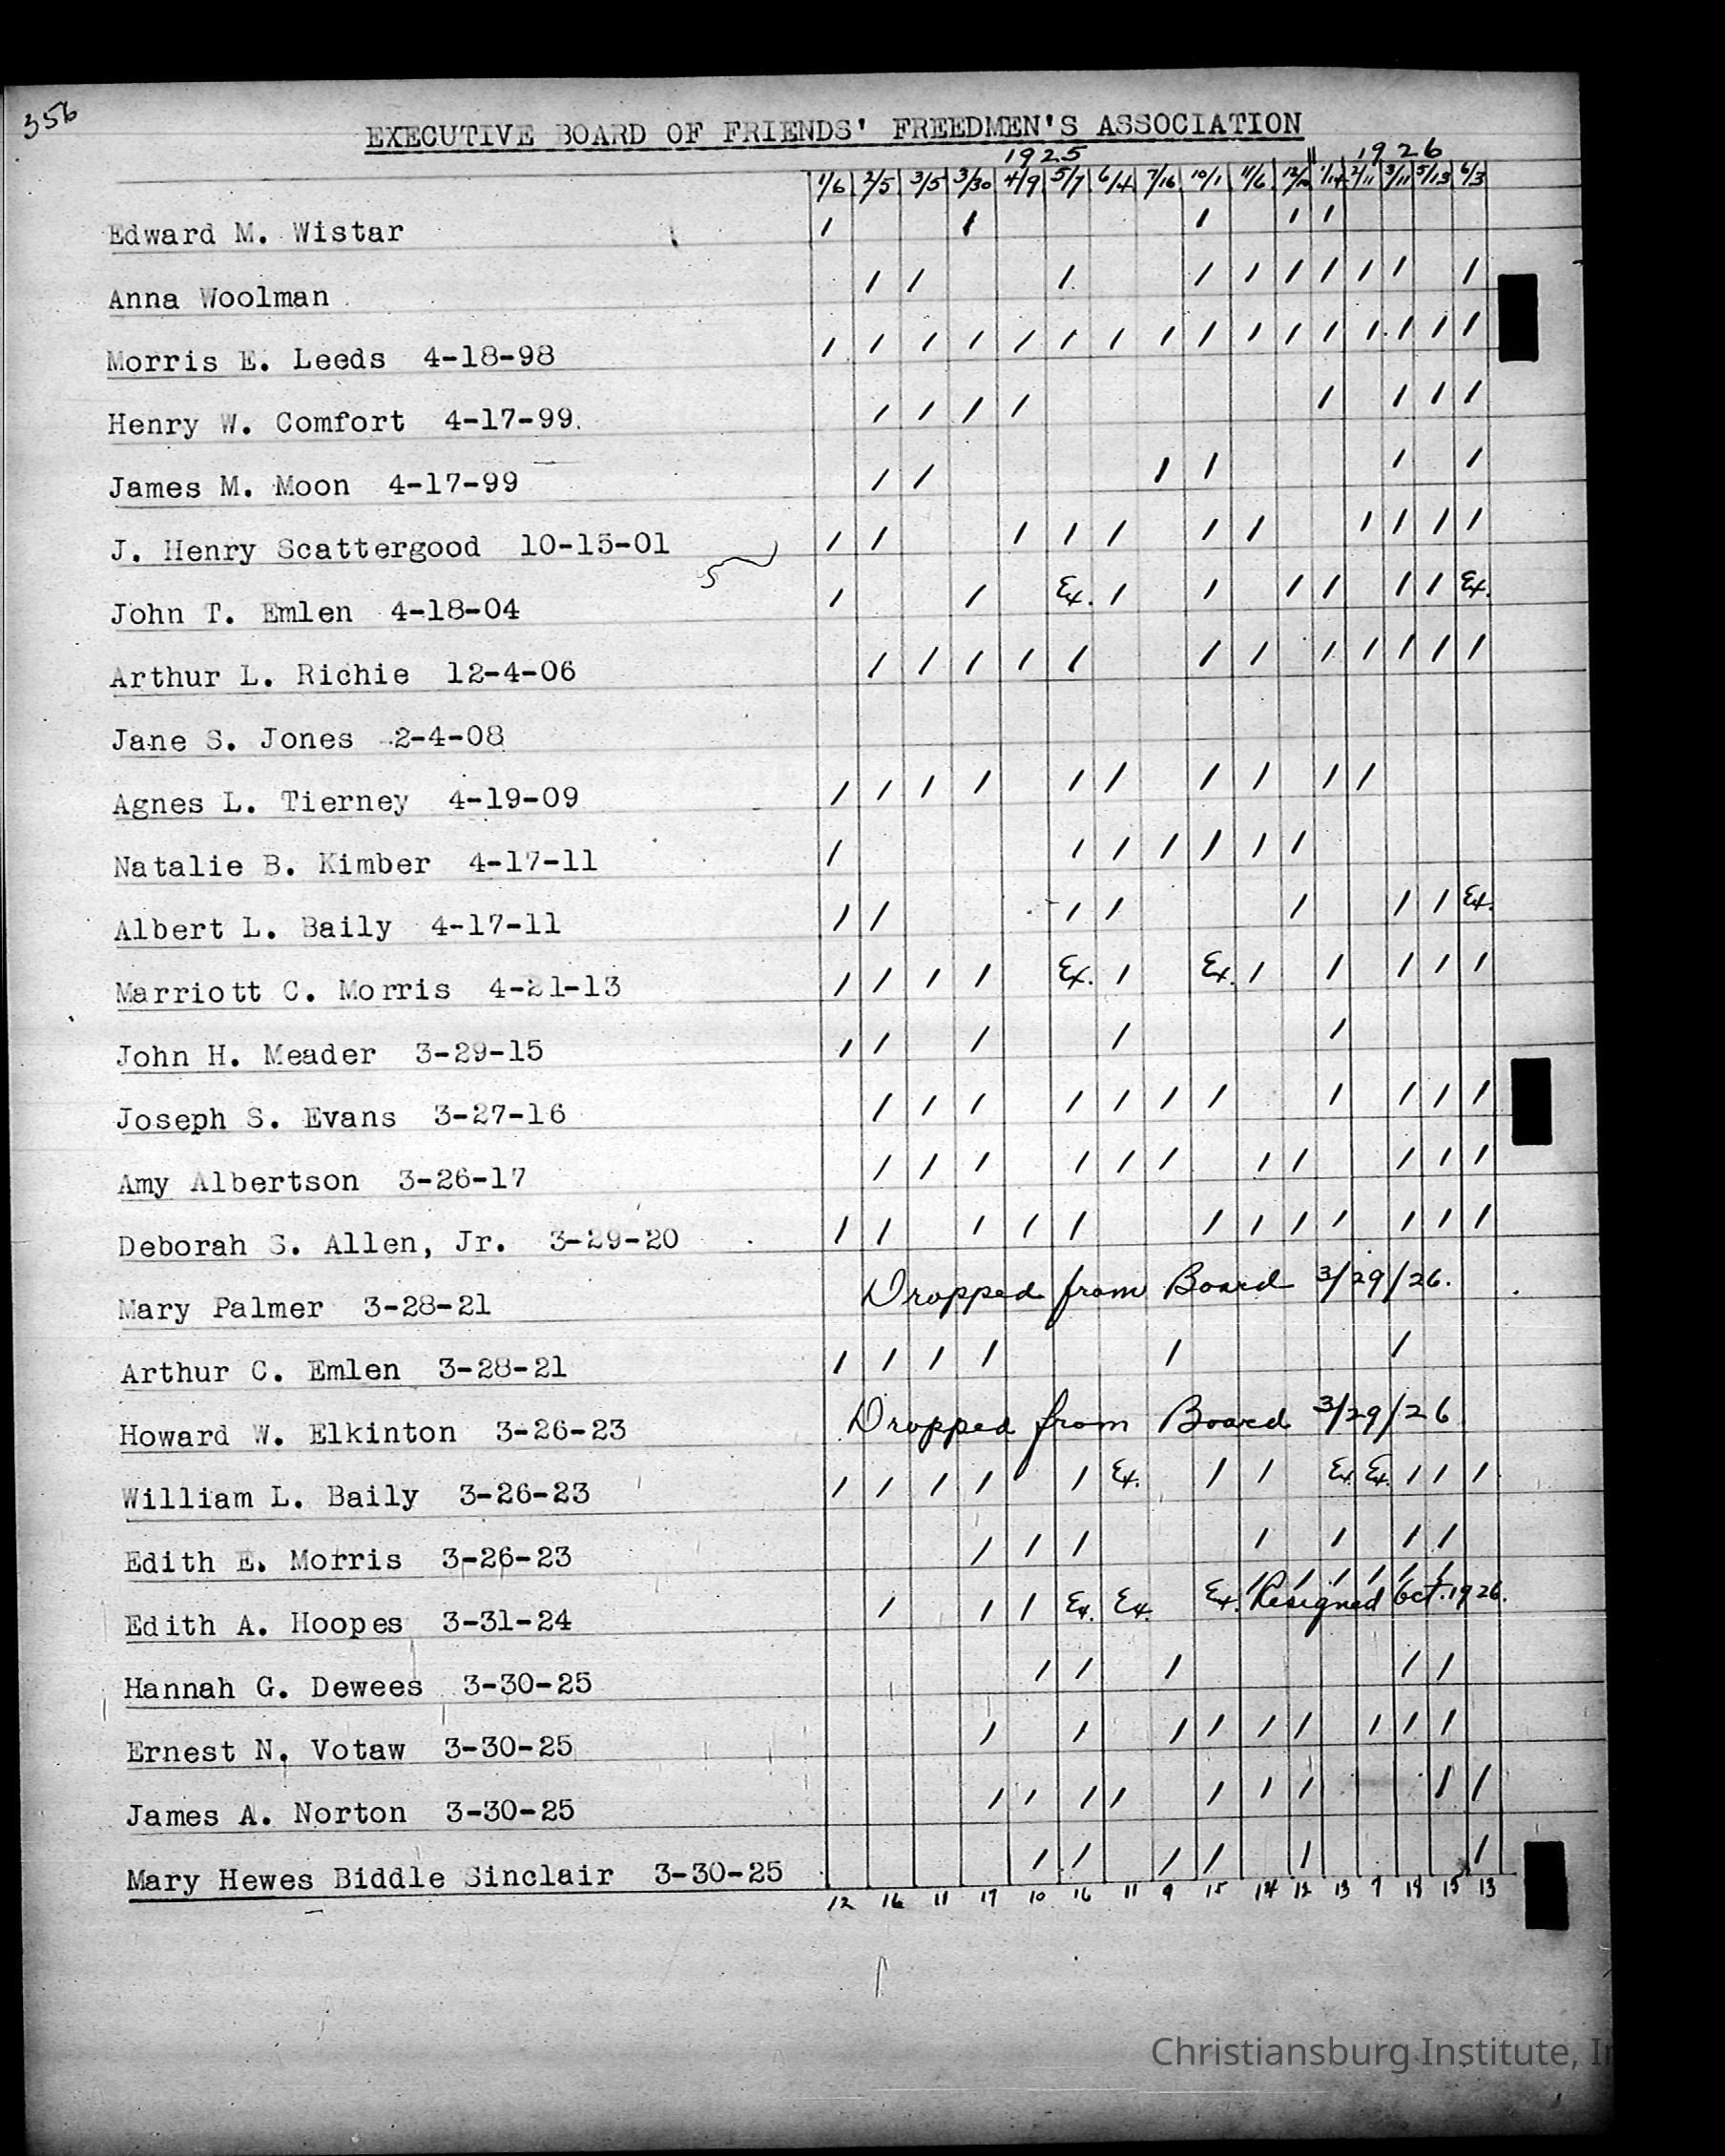 356
EXECUTIVE BOARD OF FRIENDS' FREEDMEN'S ASSOCIATION
1925 1926
1/6 2/5 3/5 3/30 4/9 5/7 6/4 7/16 10/1 11/6 1/14 2/11 3/11 5/13 6/3
Edward M. Wistar / / / / /
Anna Woolman / / / / / / / / / /
Morris E. Leeds 4-18-98 / / / / / / / / / / / / / / / /
Henry W. Comfort 4-17-99 / / / / / / / /
James M. Moon 4-17-99 / / / / / /
J. Henry Scattergood 10-15-01 / / / / / / / / / / /
John T. Emlen 4-18-04 / / Ex. / / / / / / Ex.
Arthur L. Richie 12-4-06 / / / / / / / / / / / /
Jane S. Jones 2-4-08
Agnes L. Tierney 4-19-09 / / / / / / / / / /
Natalie B. Kimber 4-17-11 / / / / / / /
Albert L. Baily 4-17-11 / / / / / / / Ex.
Marriott C. Morris 4-21-13 / / / / Ex. / Ex. / / / / /
John H. Meader 3-29-15 / / / / /
Joseph S. Evans 3-27-16 / / / / / / / / / / /
Amy Albertson 3-26-17 / / / / / / / / / / /
Deborah S. Allen, Jr. 3-29-20 / / / / / / / / / / / /
Mary Palmer 3-28-21 Dropped from Board 3/29/26.
Arthur C. Emlen 3-28-21 / / / / / /
Howard W. Elkinton 3-26-23 Dropped from Board 3/29/26
William L. Baily 3-26-23 / / / / / Ex. / / Ex. Ex. / / /
Edith E. Morris 3-26-23 / / / / / / /
Edith A. Hoopes 3-31-24 / / / Ex. Ex. Ex. / / / / / / Resigned Oct. 1926.
Hannah G. Dewees 3-30-25 / / / / /
Ernest N. Votaw 3-30-25 / / / / / / / / /
James A. Norton 3-30-25 / / / / / / / / /
Mary Hewes Biddle Sinclair 3-30-25 / / / / / /
12 16 11 17 10 16 11 9 15 14 12 13 15 13
Christiansburg Institute, I